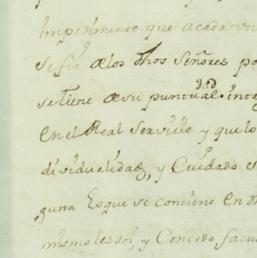 impedimento que acada un
se fia de los dhos Señores po
se tiene de su puntualidad inte
en el Real Servicio y que lo
dividualidad, y Cuidado
guna Eoque se contiene en
mismo les doi, y Concedo facu